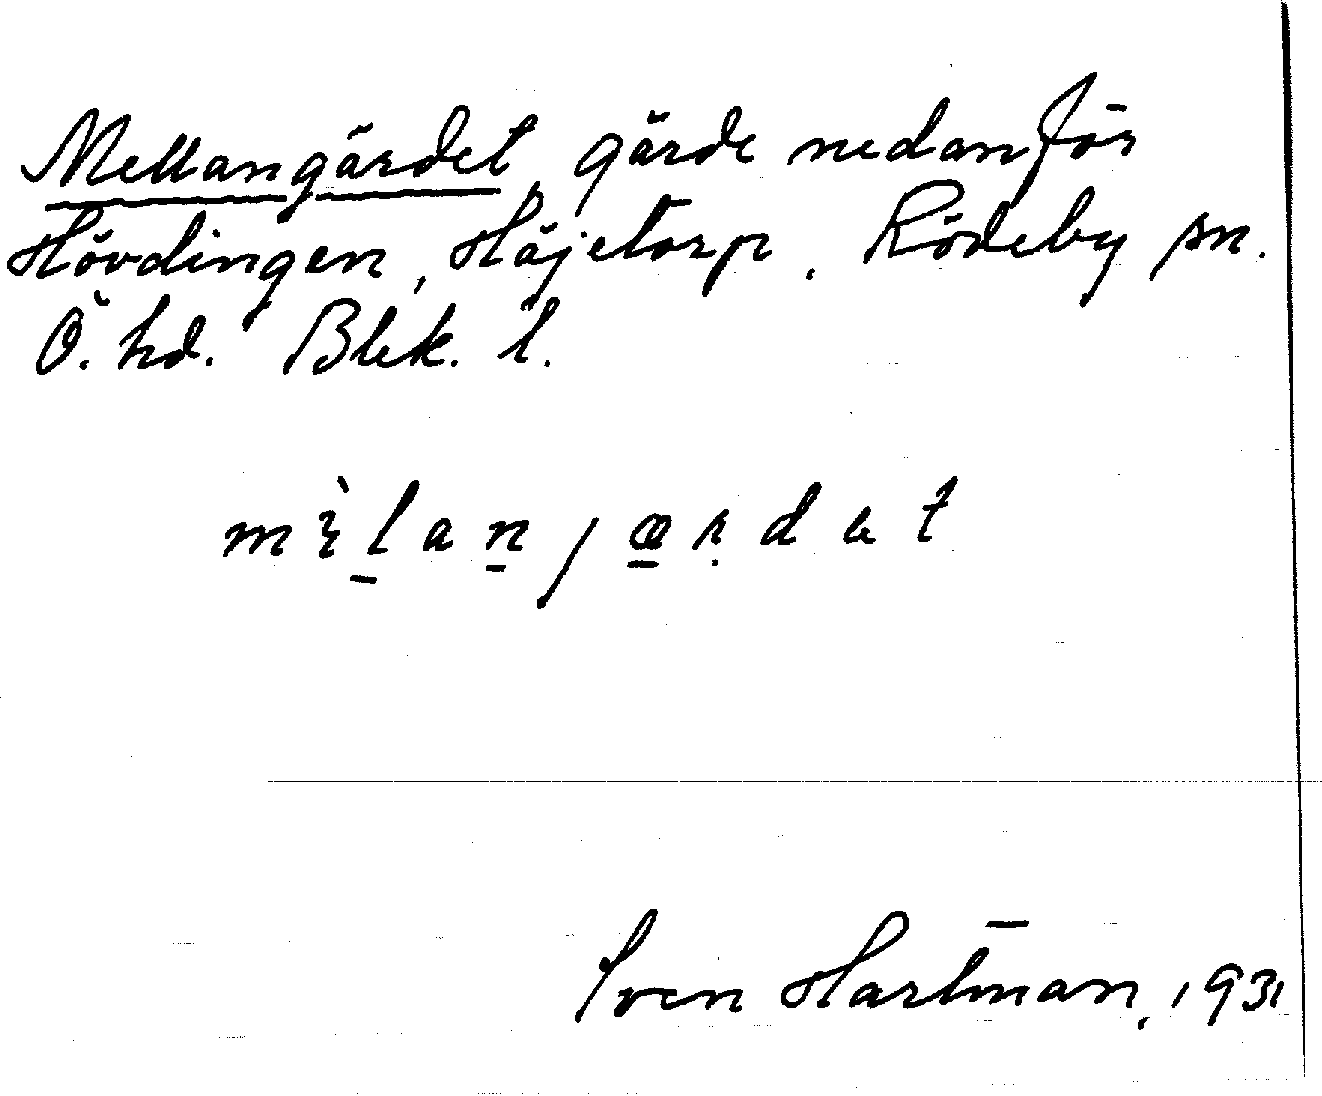 Mellangärdet, gärde nedanför
Hövdingen, Häjetorp, Rödeby sn.
Ö. hd. Blek. l.
Sven Hartman, 1931